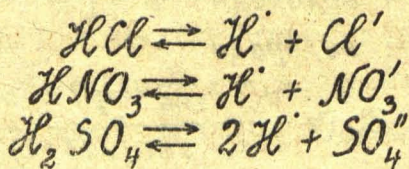 HCl ⇄ H˙ + Cl′
HNO₃ ⇄ H˙ + NO₃′
H₂SO₄ ⇄ 2H˙ + SO₄″